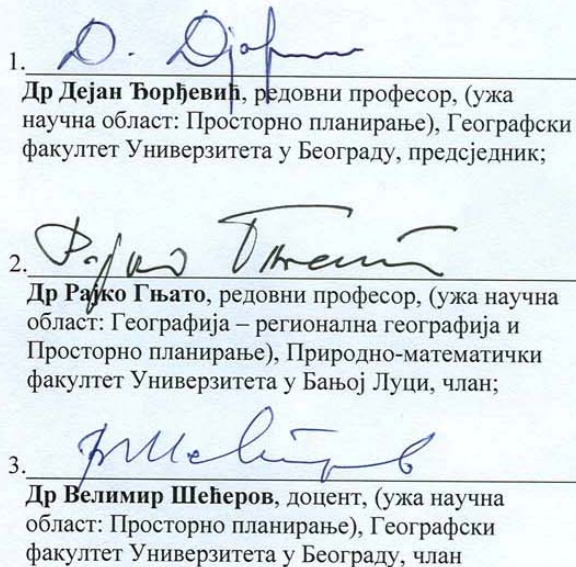 1.
Др Дејан Ђорђевић, редовни професор, (ужа
научна област: Просторно планирање), Географски
факултет Универзитета у Београду, предсједник;
2.
Др Рајко Гњато, редовни професор, (ужа научна
област: Географија – регионална географија и
Просторно планирање), Природно-математички
факултет Универзитета у Бањој Луци, члан;
3.
Др Велимир Шећеров, доцент, (ужа научна
област: Просторно планирање), Географски
факултет Универзитета у Београду, члан